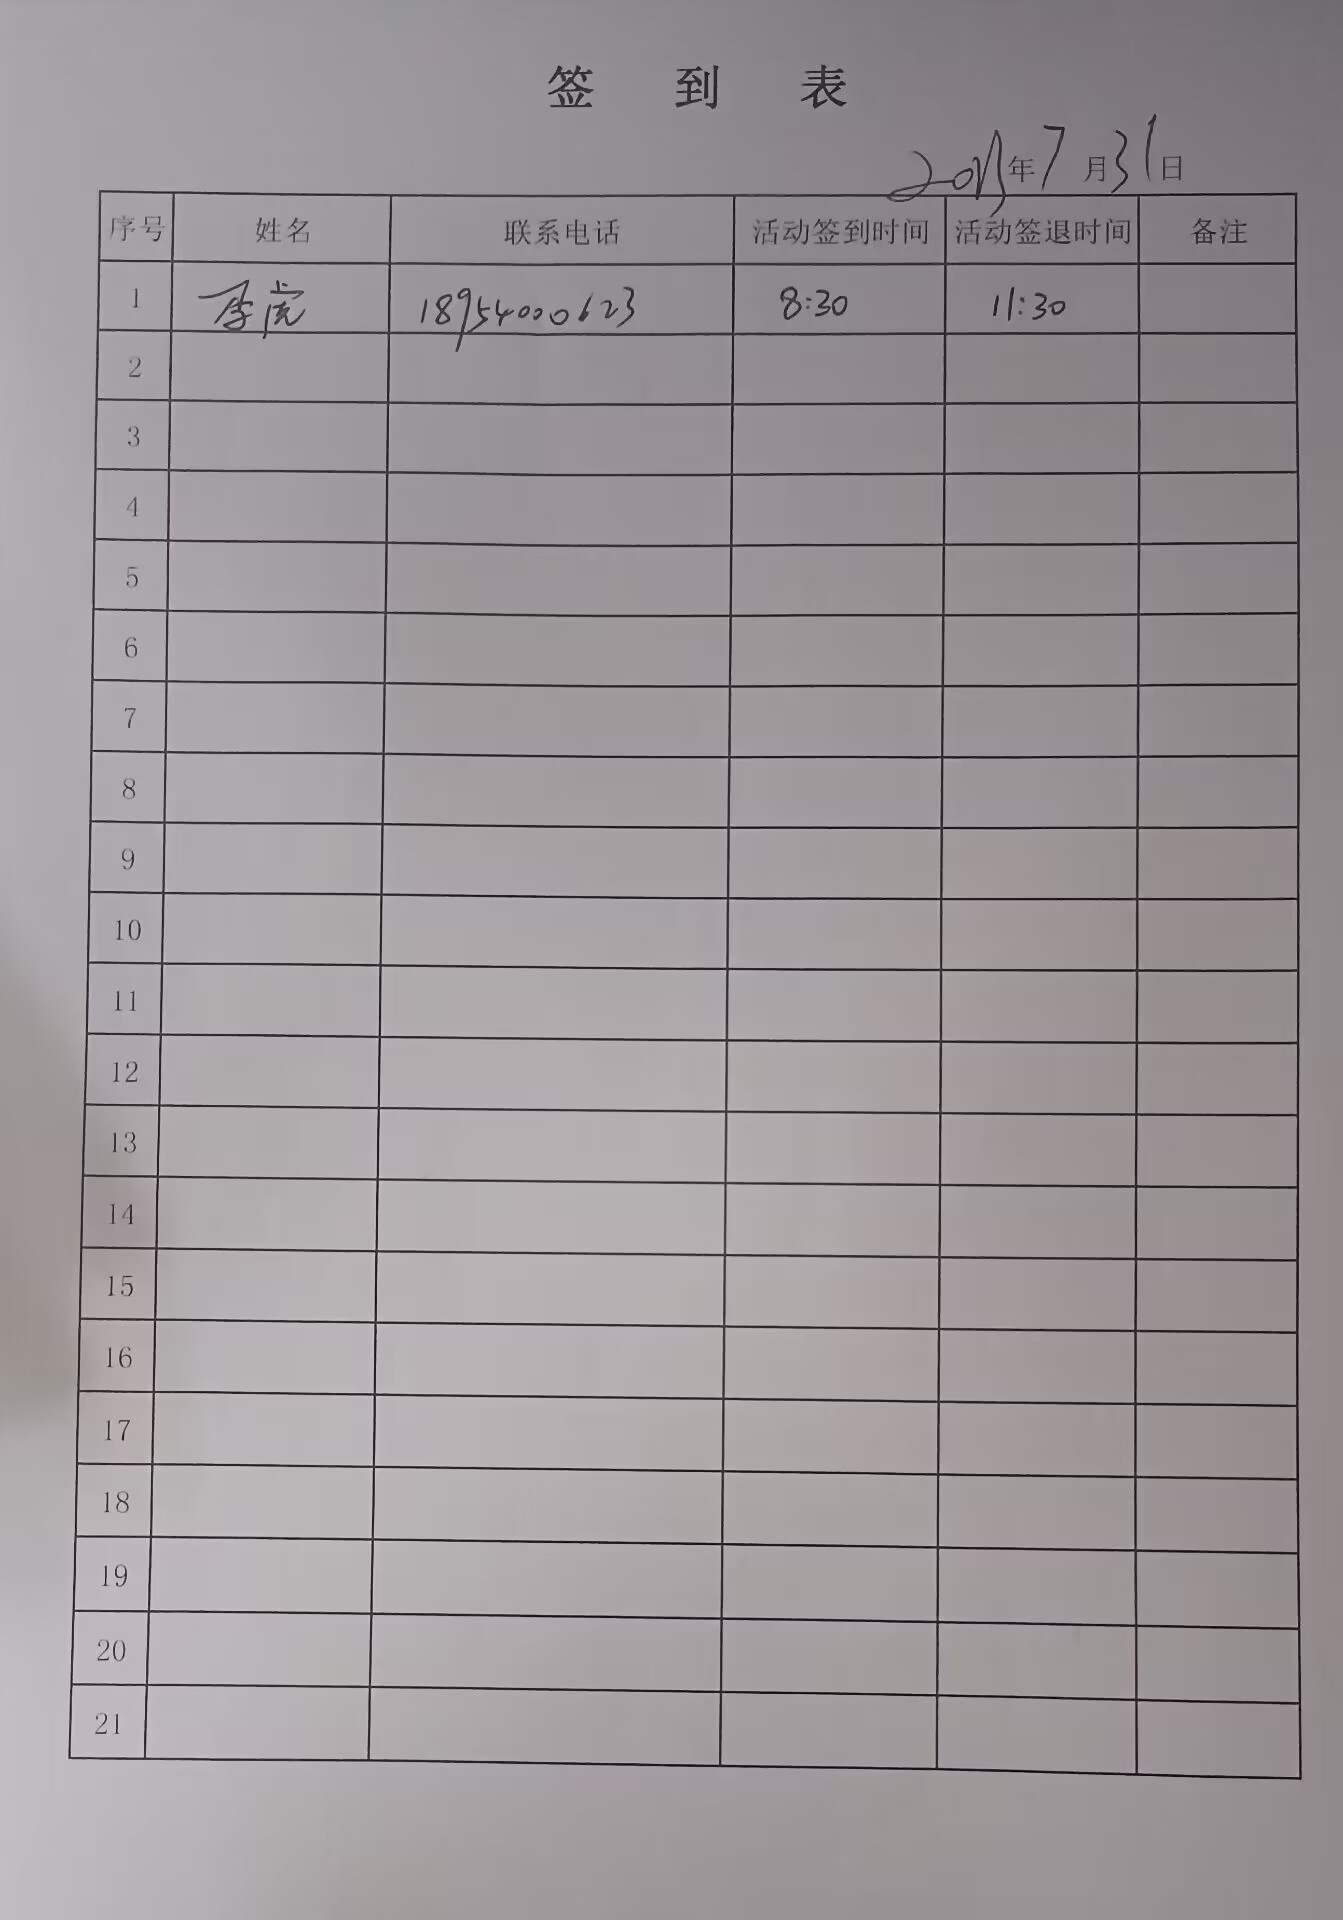 签到表
年7月31日
序号 姓名 联系电话 活动签到时间 活动签退时间 备注
1 李虎 18954000623 8:30 11:30
2
3
4
5
6
7
8
9
10
11
12
13
14
15
16
17
18
19
20
21